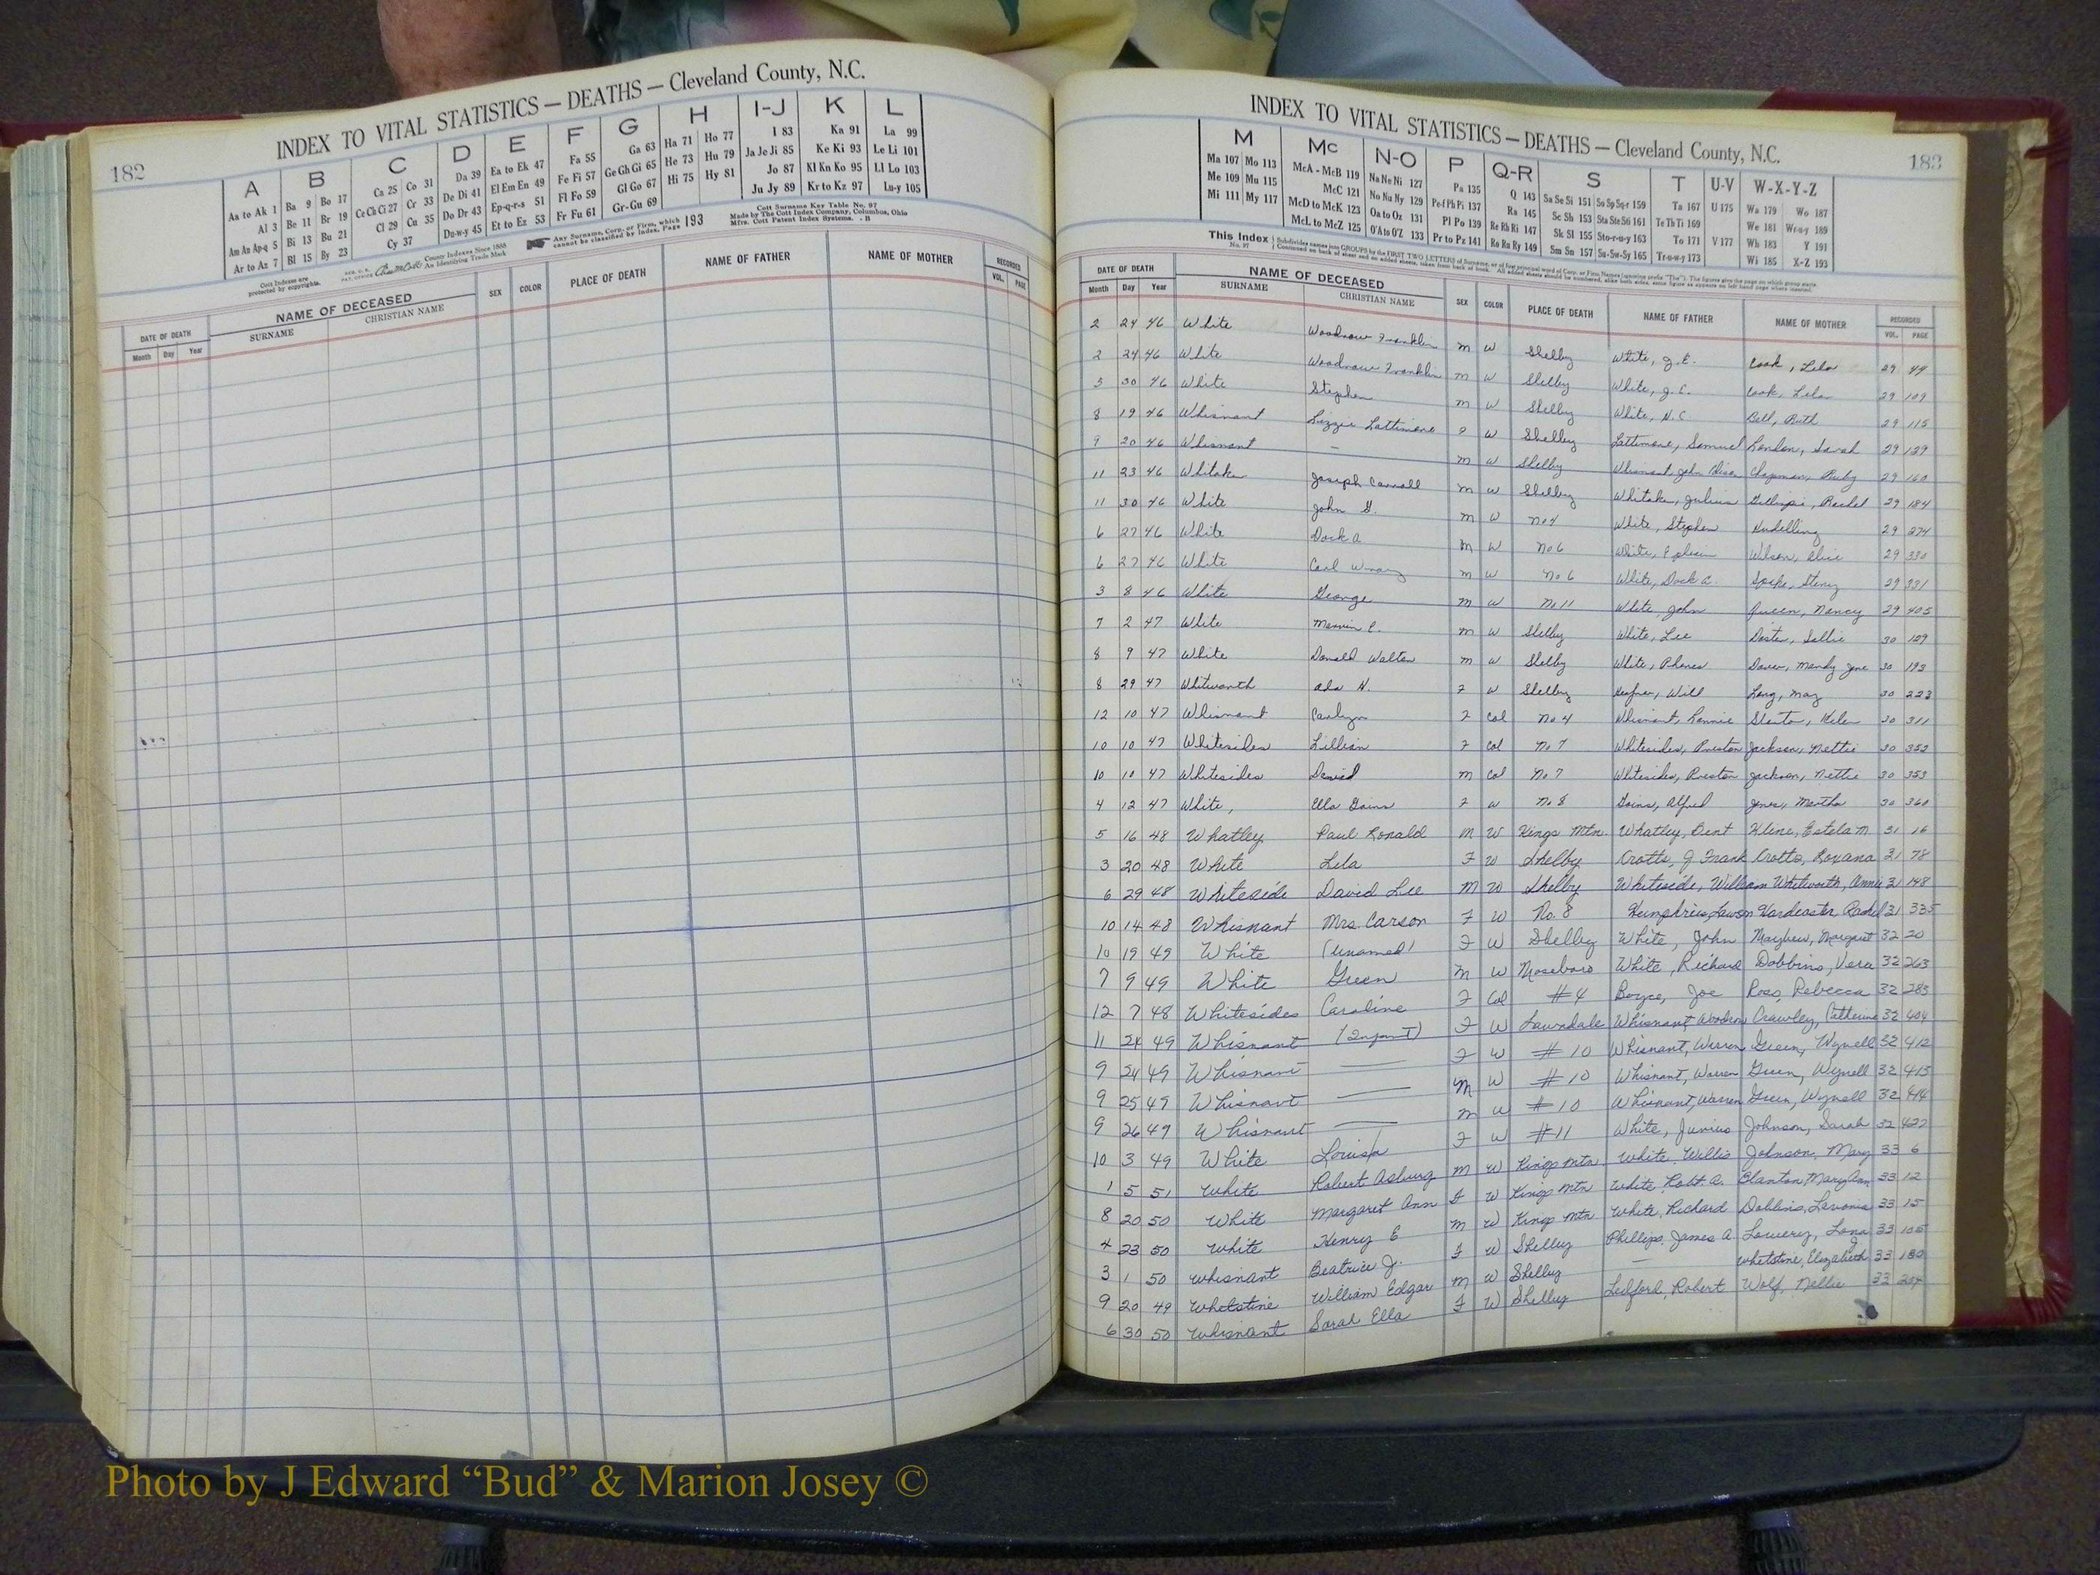 182
INDEX TO VITAL STATISTICS — DEATHS — Cleveland County, N.C.
A B C D E F G H I-J K L
Aa to Ak 1 Ba 9 Bo 17 Ca 25 Co 31 Da 39 Ea to Ek 47 Fa 55 Ga 63 Ha 71 Ho 77 I 83 Ka 91 La 99
Al 3 Be 11 Br 19 Ce Ch Ci 27 Cr 33 De Di 41 El Em En 49 Fe Fi 57 Ge Gh Gi 65 He 73 Hu 79 Ja Je Ji 85 Ke Ki 93 Le Li 101
Am An Ap-q 5 Bi 13 Bu 21 Cl 29 Cu 35 Do Dr 43 Ep-q-r-s 51 Fl Fo 59 Gl Go 67 Hi 75 Hy 81 Jo 87 Kl Kn Ko 95 Ll Lo 103
Ar to Az 7 Bl 15 By 23 Cy 37 Du-w-y 45 Et to Ez 53 Fr Fu 61 Gr-Gu 69 Ju Jy 89 Kr to Kz 97 Lu-y 105
Cott Indexes are protected by copyrights.
County Indexes Since 1888
An Identifying Trade Mark
Any Surname, Corp. or Firm, which cannot be classified by Index, Page 193
Cott Surname Key Table No. 97
Made by The Cott Index Company, Columbus, Ohio
Mfrs. Cott Patent Index Systems. . B
DATE OF DEATH NAME OF DECEASED SEX COLOR PLACE OF DEATH NAME OF FATHER NAME OF MOTHER RECORDED
Month Day Year SURNAME CHRISTIAN NAME VOL. PAGE
INDEX TO VITAL STATISTICS — DEATHS — Cleveland County, N.C.
183
M Mc N-O P Q-R S T U-V W-X-Y-Z
Ma 107 Mo 113 McA - McB 119 Na Ne Ni 127 Pa 135 Q 143 Sa Se Si 151 So Sp Sq-r 159 Ta 167 U 175 Wa 179 Wo 187
Me 109 Mu 115 McC 121 No Nu Ny 129 Pe-f Ph Pi 137 Ra 145 Sc Sh 153 Sta Ste Sti 161 Te Th Ti 169 We 181 Wr-u-y 189
Mi 111 My 117 McD to McK 123 Oa to Oz 131 Pl Po 139 Re Rh Ri 147 Sk Sl 155 Sto-r-u-y 163 To 171 V 177 Wh 183 Y 191
McL to McZ 125 O'A to O'Z 133 Pr to Pz 141 Ro Ru Ry 149 Sm Sn 157 Su-Sw-Sy 165 Tr-u-w-y 173 Wi 185 X-Z 193
This Index No. 97 Subdivides names into GROUPS by the FIRST TWO LETTERS of Surname, or of first principal word of Corp. or Firm Names (ignoring prefix "The"). The figures give the page on which group starts.
DATE OF DEATH NAME OF DECEASED SEX COLOR PLACE OF DEATH NAME OF FATHER NAME OF MOTHER RECORDED
Month Day Year SURNAME CHRISTIAN NAME VOL. PAGE
2 24 46 White Woodrow Franklin M W Shelby White, J. E. Cook, Lela 29 44
2 24 46 White Woodrow Franklin M W Shelby White, J. C. Cook, Lela 29 109
5 30 46 White Stephen M W Shelby White, N. C. Bell, Ruth 29 115
8 19 46 Whisnant Lizzie Lattimore F W Shelby Lattimore, Samuel London, Sarah 29 139
9 20 46 Whisnant — M W Shelby Whisnant, John Chapman, Ruby 29 160
11 23 46 Whitaker Joseph Carroll M W Shelby Whitaker, Julius Gillespie, Rachel 29 184
11 30 46 White John G. M W No 4 White, Stephen 29 274
6 27 46 White Dock A M W No 6 White, Ephraim Wilson, Alice 29 330
6 27 46 White Carl Wray M W No 6 White, Dock A. 29 331
3 8 46 White George M W No 11 White, John Queen, Nancy 29 405
7 2 47 White Marvin E. M W Shelby White, Lee Sallie 30 109
8 9 47 White Donald Walton M W Shelby White, Mandy Jane 30 193
8 29 47 Whitworth Ada H. F W Shelby Will Long, May 30 223
12 10 47 Whisnant Carlyn F Col No 4 Whisnant, Lonnie Helen 30 311
10 10 47 Whitesides Lillian F Col No 7 Whitesides, Preston Jackson, Nettie 30 352
10 10 47 Whitesides David M Col No 7 Whitesides, Preston Jackson, Nettie 30 353
4 12 47 White, Ella Goins F W No 8 Goins, Alfred Jones, Martha 30 360
5 16 48 Whatley Paul Ronald M W Kings Mtn. Whatley, Bent Kline, Estela M 31 16
3 20 48 White Lila F W Shelby Crotts, J Frank Crotts, Roxana 31 78
6 29 48 Whiteside David Lee M W Shelby Whiteside, William Whitworth, Annie 31 148
10 14 48 Whisnant Mrs. Carson F W No. 8 Humphries, Lawson Hardcaster, Rachel 31 335
10 19 49 White (Unnamed) F W Shelby White, John Mayhew, Margaret 32 20
7 9 49 White Green M W Mooseboro White, Richard Dobbins, Vera 32 263
12 7 48 Whitesides Caroline F Col #4 Boyce, Joe Ross, Rebecca 32 285
11 24 49 Whisnant (Infant) F W Lawndale Whisnant, Woodrow Crawley, Catherine 32 404
9 24 49 Whisnant — F W #10 Whisnant, Warren Green, Wynell 32 412
9 25 49 Whisnant — M W #10 Whisnant, Warren Green, Wynell 32 413
9 26 49 Whisnant — M W #10 Whisnant, Warren Green, Wynell 32 414
10 3 49 White Louisa F W #11 White, Junius Johnson, Sarah 32 422
1 5 51 White Robert Asbury M W Kings Mtn White, Willis Johnson, Mary 33 6
8 20 50 White Margaret Ann F W Kings Mtn White, Robt. A. Blanton, Mary Ann 33 12
4 23 50 White Henry E M W Kings Mtn White, Richard Dobbins, Lavonia 33 15
3 1 50 Whisnant Beatrice J. F W Shelby Phillips, James A. Lowery, Lona J 33 105
9 20 49 Whetstine William Edgar M W Shelby — Whetstine, Elizabeth 33 182
6 30 50 Whisnant Sarah Ella F W Shelby Ledford, Robert Wolf, Nellie 33 204
Photo by J Edward “Bud” & Marion Josey ©